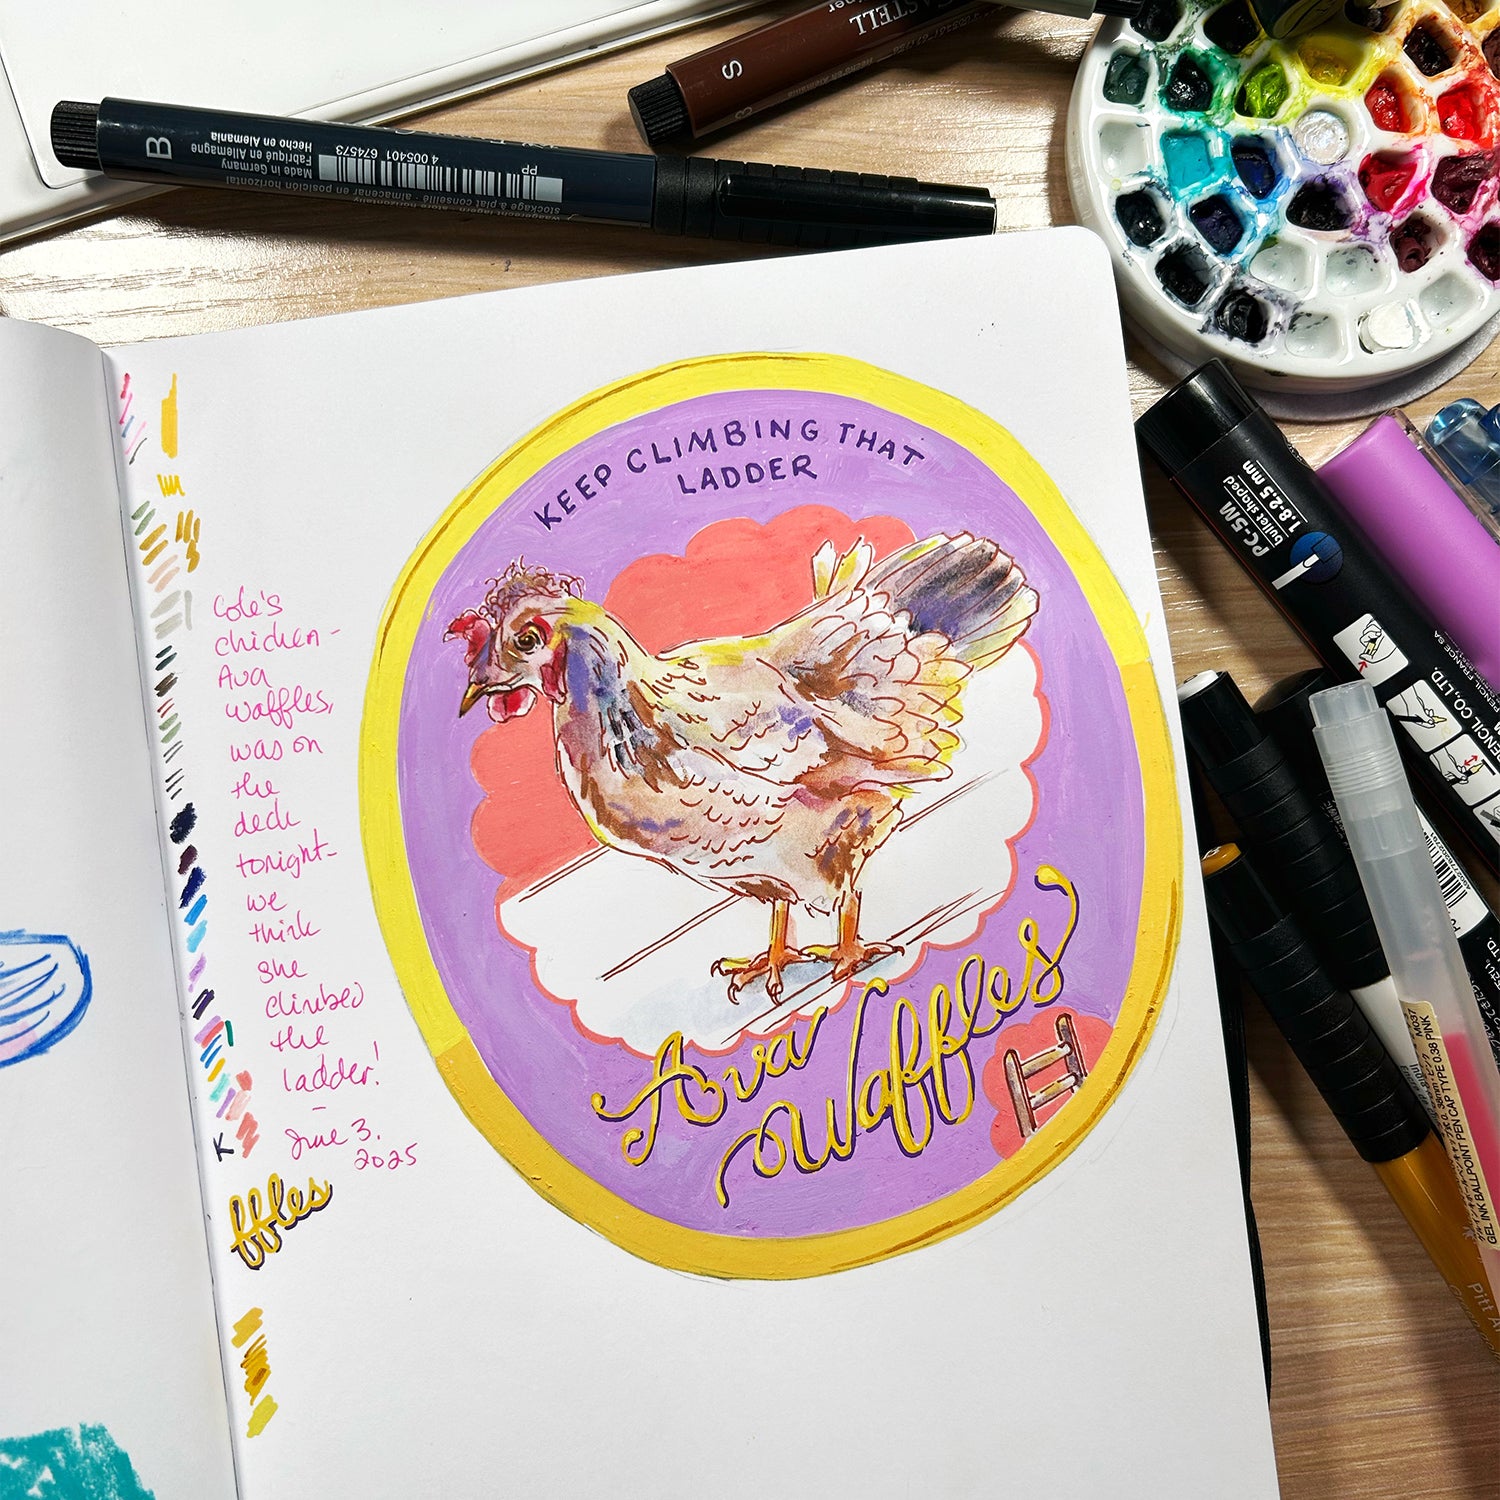 CASTELL
S
B
4 005401 674573
PP
Made in Germany
Fabriqué en Allemagne
Hecho en Alemania
Stockage à plat conseillé · almacenar en posición horizontal
KEEP CLIMBING THAT
LADDER
Ava
Waffles
Cole's
chicken -
Ava
waffles,
was on
the
deck
tonight -
we
think
she
climbed
the
ladder!
-
June 3.
2025
K
ffles
PC-5M
bullet shaped
1.8-2.5 mm
PENCIL CO., LTD.
GEL INK BALLPOINT PEN CAP TYPE 0.38 PINK
M037
Pitt A